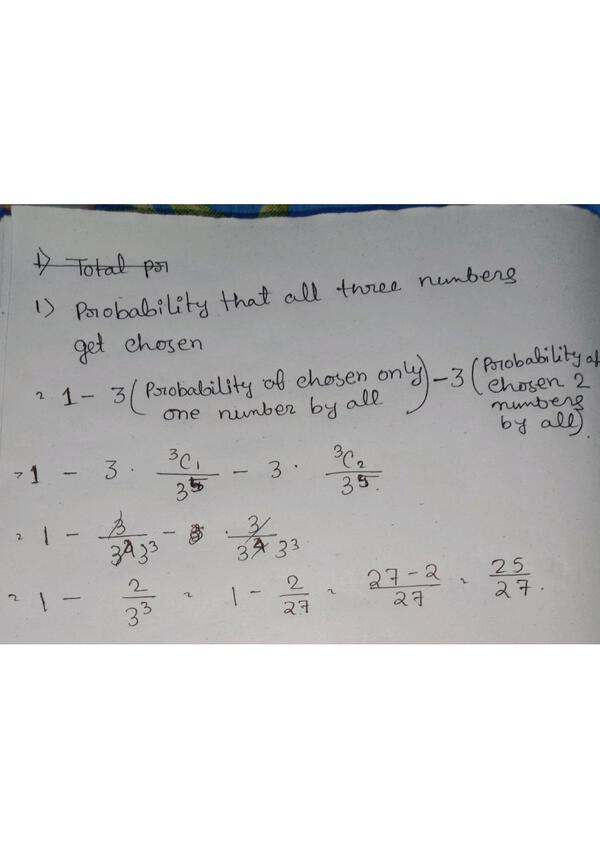 1) Total por
1) Probability that all three numbers
get chosen
= 1 - 3 (Probability of chosen only one number by all) - 3 (Probability of chosen 2 numbers by all).
= 1 - 3 · ³C₁/3⁵ - 3 · ³C₂/3⁵.
= 1 - 3/3⁴ 3³ - · 3/3⁴ 3³
= 1 - 2/3³ = 1 - 2/27 = 27-2/27 = 25/27.